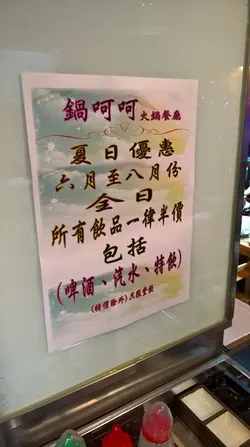 鍋呵呵火鍋餐廳
夏日優惠
六月至八月份
全日
所有飲品一律半價
包括
(啤酒、汽水、特飲)
(特價除外)只限堂飲